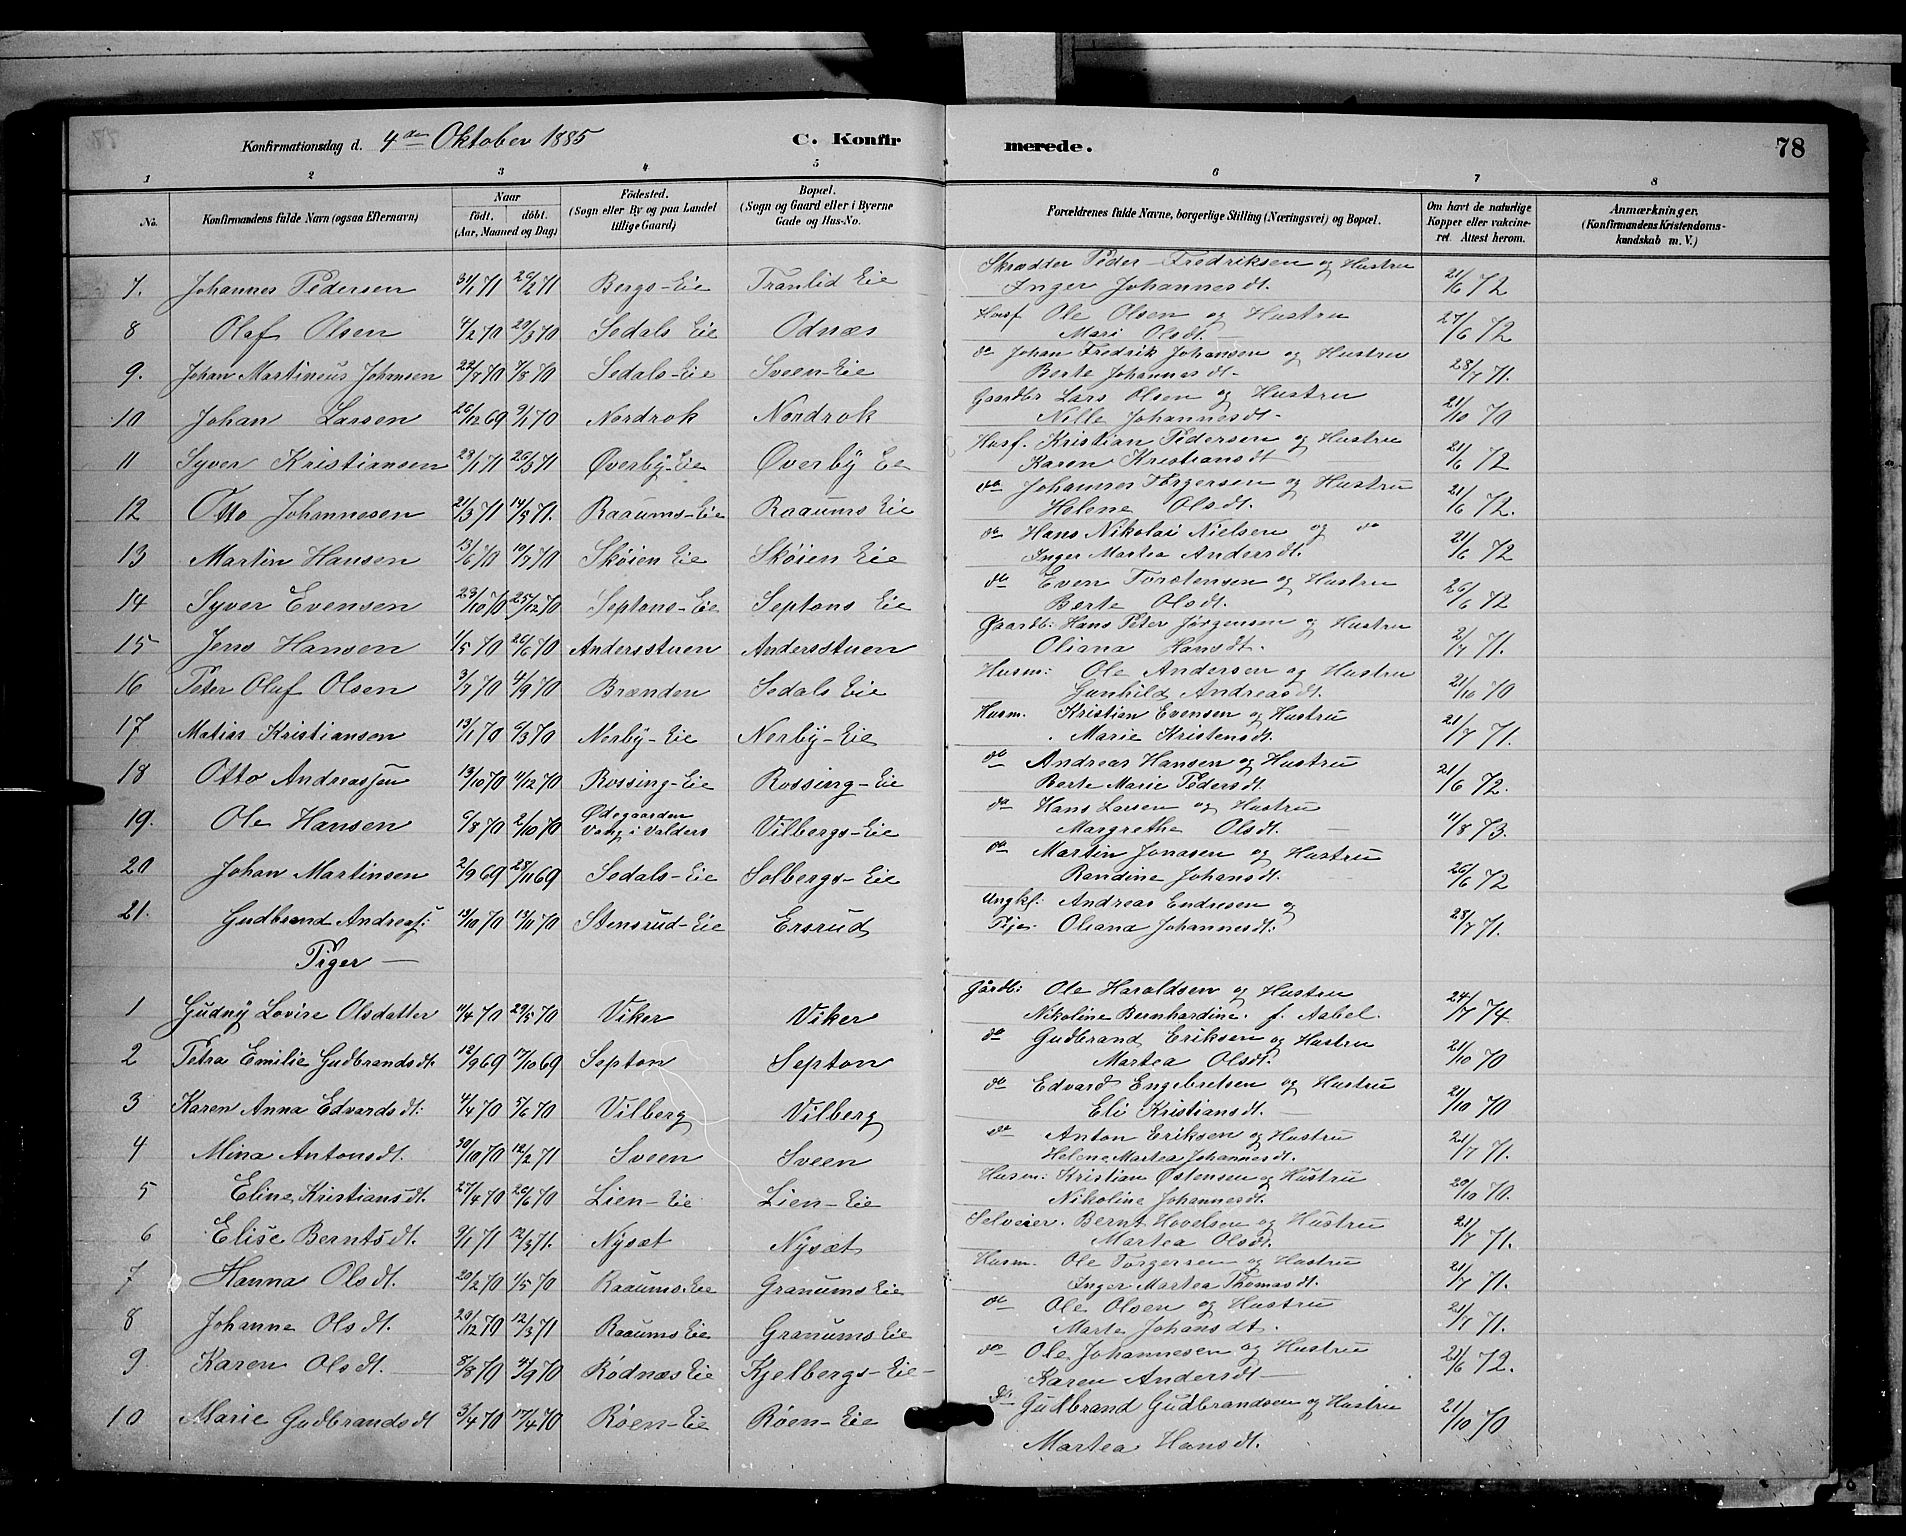 Konfirmationsdag d. 4de Oktober 1885 C. Konfirmerede. 78
1 2 3 4 5 6 7 8
No. Konfirmandens fulde Navn (ogsaa Efternavn) Naar født. døbt. (Aar, Maaned og Dag) Fødested. (Sogn eller By og paa Landet tillige Gaard) Bopæl. (Sogn og Gaard eller i Byerne Gade og Hus-No. Forældrenes fulde Navne, borgerlige Stilling (Næringsvei) og Bopæl. Om havt de naturlige Kopper eller vakcineret. Attest herom. Anmærkninger. (Konfirmandens Kristendomskundskab m. V.)
7. Johannes Pedersen 31/1 71 26/2 71 Bergs-Eie Tranlid Eie Skrædder Peder Fredriksen og Hustru
Inger Johannesdt. 21/6 72
8 Olaf Olsen 4/2 70 20/3 70 Sedals Eie Odnæs Husf. Ole Olsen og Hustru
Mari Olsdt. 27/6 72
9. Johan Martineus Johansen 22/7 70 7/8 70 Sedals-Eie Sveen-Eie do Johan Fredrik Johansen og Hustru
Berte Johannesdt. 28/7 71.
10 Johan Larsen 26/12 69 9/1 70 Nordrok Nordrok Gaardbr Lars Olsen og Hustru
Nille Johannesdt. 21/10 70
11 Syver Kristiansen 23/1 71 26/3 71 Øverby-Eie Øverby Eie Husf. Kristian Pedersen og Hustru
Karen Kristiansdt 21/6 72
12 Otto Johannesen 21/3 71 14/5 71. Raaums-Eie Raaums Eie do Johannes Torgersen og Hustru
Helene Olsdt. 21/6 72.
13 Martin Hansen 13/6 70 10/7 70 Skøien Eie Skøien Eie do Hans Nikolai Nielsen og do
Inger Martea Andersdt. 21/6 72
14 Syver Evensen 23/10 70 25/12 70 Septons-Eie Septons Eie do Even Torstensen og Hustru
Berte Olsdt. 26/6 72
15 Jens Hansen 1/5 70 26/6 70 Andersstuen Andersstuen Gaardb: Hans Peter Jørgensen og Hustru
Oliana Hansdt. 2/7 71.
16 Peter Olaf Olsen 3/7 70 4/9 70 Brænden Sedals Eie Husm: Ole Andersen og Hustru
Gunhild Andreasdt. 21/10 70
17 Matias Kristiansen 13/1 70 6/3 70 Nerby-Eie Nerby-Eie Husm. Kristian Evensen og Hustru
Marie Kristensdt. 21/7 71.
18 Otto Andreassen 13/10 70 4/12 70 Rossing-Eie Rossing-Eie do Andreas Hansen og Hustru
Berte Marie Pedersdt. 21/6 72.
19. Ole Hansen 6/8 70 2/10 70 Ødegaarden Vang i Valders Vilbergs-Eie do Hans Larsen og Hustru
Margrethe Olsdt. 11/8 73.
20 Johan Martinsen 2/9 69 28/11 69 Sedals-Eie Solbergs-Eie do Martin Jonasen og Hustru
Randine Johansdt. 26/6 72
21. Gudbrand Andreass: 13/10 70 13/11 70 Stensrud-Eie Ersrud Ungkl: Andreas Endresen og
Pige Oliana Johannesdt. 28/7 71.
Piger
1 Gudny Lovise Olsdatter 11/4 70 29/5 70 Viker Viker Gårdb: Ole Haraldsen og Hustru
Nikoline Bernhardine f. Aabel. 24/7 74
2 Petra Emilie Gudbrandsdt. 12/9 69 17/10 69 Septon Septon do Gudbrand Eriksen og Hustru
Martea Olsdt. 21/10 70
3 Karen Anna Edvardsdt: 4/4 70 5/6 70 Vilberg Vilberg do Edvard Engebretsen og Hustru
Eli Kristiansdt. 21/10 70
4 Mina Antonsdt. 30/10 70 12/2 71 Sveen Sveen do Anton Eriksen og Hustru
Helene Martea Johannesdt. 21/7 71.
5 Eline Kristiansdt. 27/4 70 26/6 70 Lien-Eie Lien-Eie Husm: Kristian Østensen og Hustru
Nikoline Johannesdt. 20/10 70.
6 Elise Berntsdt. 9/1 71 12/3 71. Nysæt Nysæt Selveier. Bernt Hovelsen og Hustru
Martea Olsdt. 21/7 71.
7 Hanna Olsdt. 20/2 70 1/5 70 Raaums. Eie Granums Eie Husm. Ole Torgersen og Hustru
Inger Martea Thomasdt. 21/7 71.
8 Johanne Olsdt. 20/12 70 12/3 71 Raaums Eie Granums Eie do Ole Olsen og Hustru
Marte Johansdt. 21/7 71.
9. Karen Olsdt. 5/8 70 4/9 70 Rødnæs Eie Kjelbergs-Eie do Ole Johannesen og Hustru
Karen Andersdt 21/6 72.
10 Marie Gudbrandsdt 3/4 70 17/4 70 Røen-Eie Røen-Eie do Gudbrand Gudbrandsen og Hustru
Martea Hansdt. 21/10 70